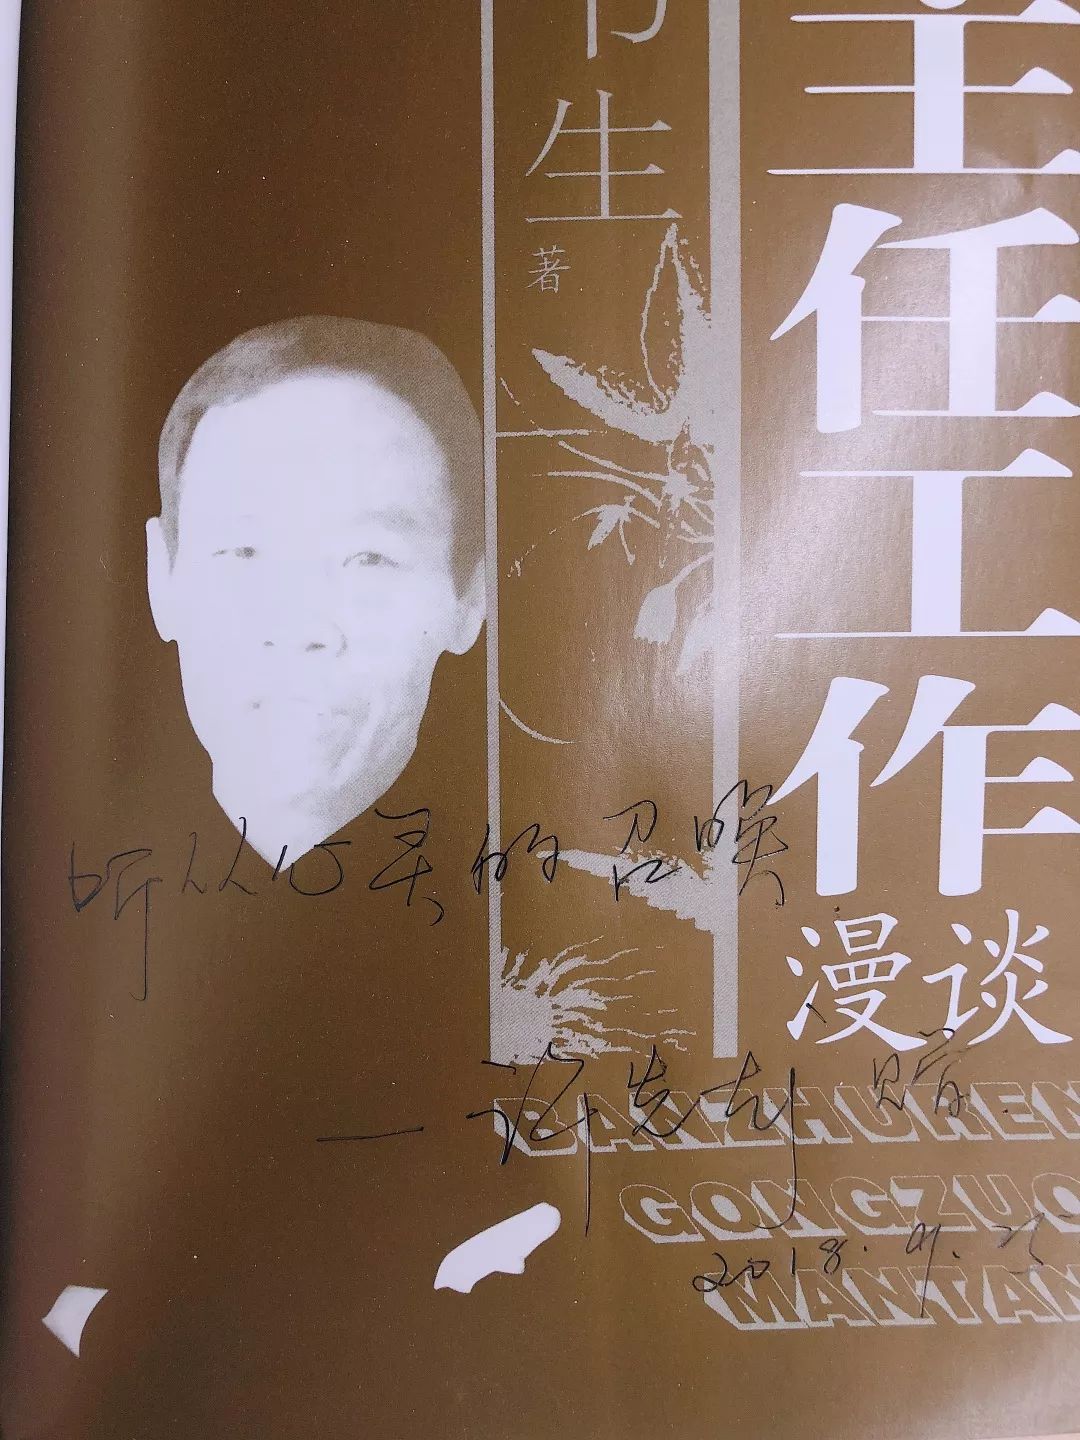 主任工作
漫谈
生
著
BANZHUREN
GONGZUO
MANTAN
听从心灵的召唤
—许先 赠
2018.9.25